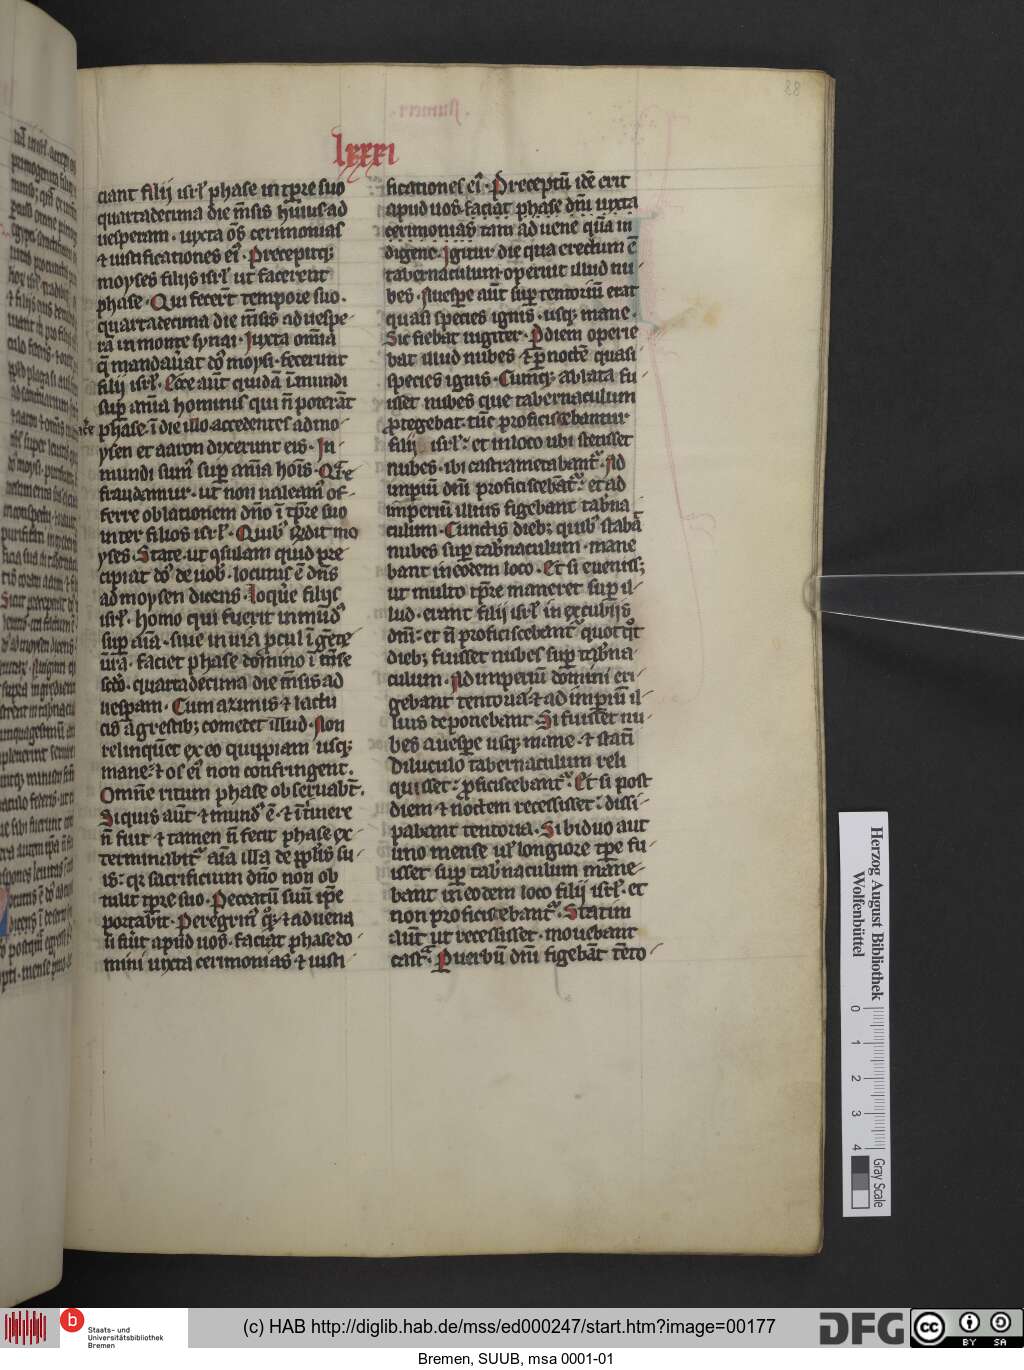 lxxxi
88
ciant filij isrł phase in tp̄re suo
quartadecima die m̄sis huius ad
uesperam · iuxta oẜ cerimonias
⁊ iustificationes eiꝰ · Precepitqꝫ
moyses filijs isrł ut facerent
phase · Qui fecer̄t tempore suo ·
quartadecima die m̄sis ad uespe
rā in monte synai · Iuxta om̄ia
q̄ mandauerat dn̄s moysi · fecerunt
filii isrł · Ecce aūt quidā īmundi
sup̄ aīa hominis qui n̄ poterāt
facere phase · ī die illo accedentes ad mo
ysen et aaron dixerunt eis · In
mundi sumꝰ sup̄ aīa hoīs · Qr̄e
fraudamur · ut non ualeamꝰ of
ferre oblationem dn̄o ī tp̄re suo
inter filios isrł · Quibꝰ r̄ndit mo
yses · State · ut ꝯsulam quid pre
cipiat dn̄s de uob · locutus ē dn̄s
ad moysen dicens · Loqu̅e filijs
isrł · homo qui fuerit inmūdꝰ
sup̄ aīa · siue in uia p̄cul ī gēte
ur̄a · faciet phase domino ī m̄se
sc̄do · quartadecima die m̄sis ad
uesp̄am · Cum azimis ⁊ lactu
cis agrestibꝫ comedet illud · Non
relinqu̅et ex eo quippiam usqꝫ
mane · ⁊ os eiꝰ non confringent ·
Omn̄e ritum phase obseruabt̄ ·
Siquis aūt ⁊ mundꝰ ē · ⁊ ī itinere
n̄ fuit ⁊ tamen n̄ fecit phase ex
terminabit̄ aīa illa de pp̄lis su
is · qr sacrificium dn̄o non ob
tulit tp̄re suo · Peccatū suū ip̄e
portabit · Peregrinꝰ qꝫ · ⁊ aduena
si fūit apud uos · faciat phase do
mini iuxta cerimonias ⁊ iusti
ficationes eiꝰ · Preceptū idē erit
apud uos · faciat phase dn̄i iuxta
cerimonias tam aduene qu̅a in
digene · Igitur die qua erectum ē
tabernaculum operuit illud nu
bes · A uesp̄e aūt sup̄ tentoriū erat
quasi species ignis · usqꝫ mane ·
Sic fiebat iugiter · P diem operie
bat illud nubes · ⁊ p noctē quasi
species ignis · Cumqꝫ ablata fu
isset nubes que tabernaculum
protegebat · tūc proficiscebantur
filij isrł · et in loco ubi stetisset
nubes · ibi castrametabant̄ · Ad
impiū dn̄i proficiscebāt̄ · et ad
imperiū illius figebant tab̄na
culum · Cunctis diebꝫ quibꝰ stabā
nubes sup̄ tab̄naculum · mane
bant in eodem loco · Et si eueniss;
ut multo tp̄re maneret sup̄ il
lud · erant filii isrł in excubijs
dn̄i · et n̄ proficiscebant̄ quotqt̄
diebꝫ fuisset nubes sup̄ tab̄na
culum · Ad imperiū domini eri
gebant tentoria · ⁊ ad impiū il
lius deponebant · Si fuisset nu
bes a uesp̄e usqꝫ mane · ⁊ statī
diluculo tabernaculum reli
quisset · p̄ficiscebant̄ · Et si post
diem ⁊ noctem recessisset · dissi
pabant tentoria · Si biduo aut
uno mense uł longiore tp̄e fu
isset sup̄ tab̄naculum mane
bant in eodem loco filij isrł · et
non proficiscebant̄ · Statim
aūt ut recessisset · mouebant
castr̄ · P uerbū dn̄i figebāt tēto
Herzog August Bibliothek
Wolfenbüttel
0 1 2 3 4
Gray Scale
b
Staats- und
Universitätsbibliothek
Bremen
(c) HAB http://diglib.hab.de/mss/ed000247/start.htm?image=00177
DFG
cc
BY SA
Bremen, SUUB, msa 0001-01